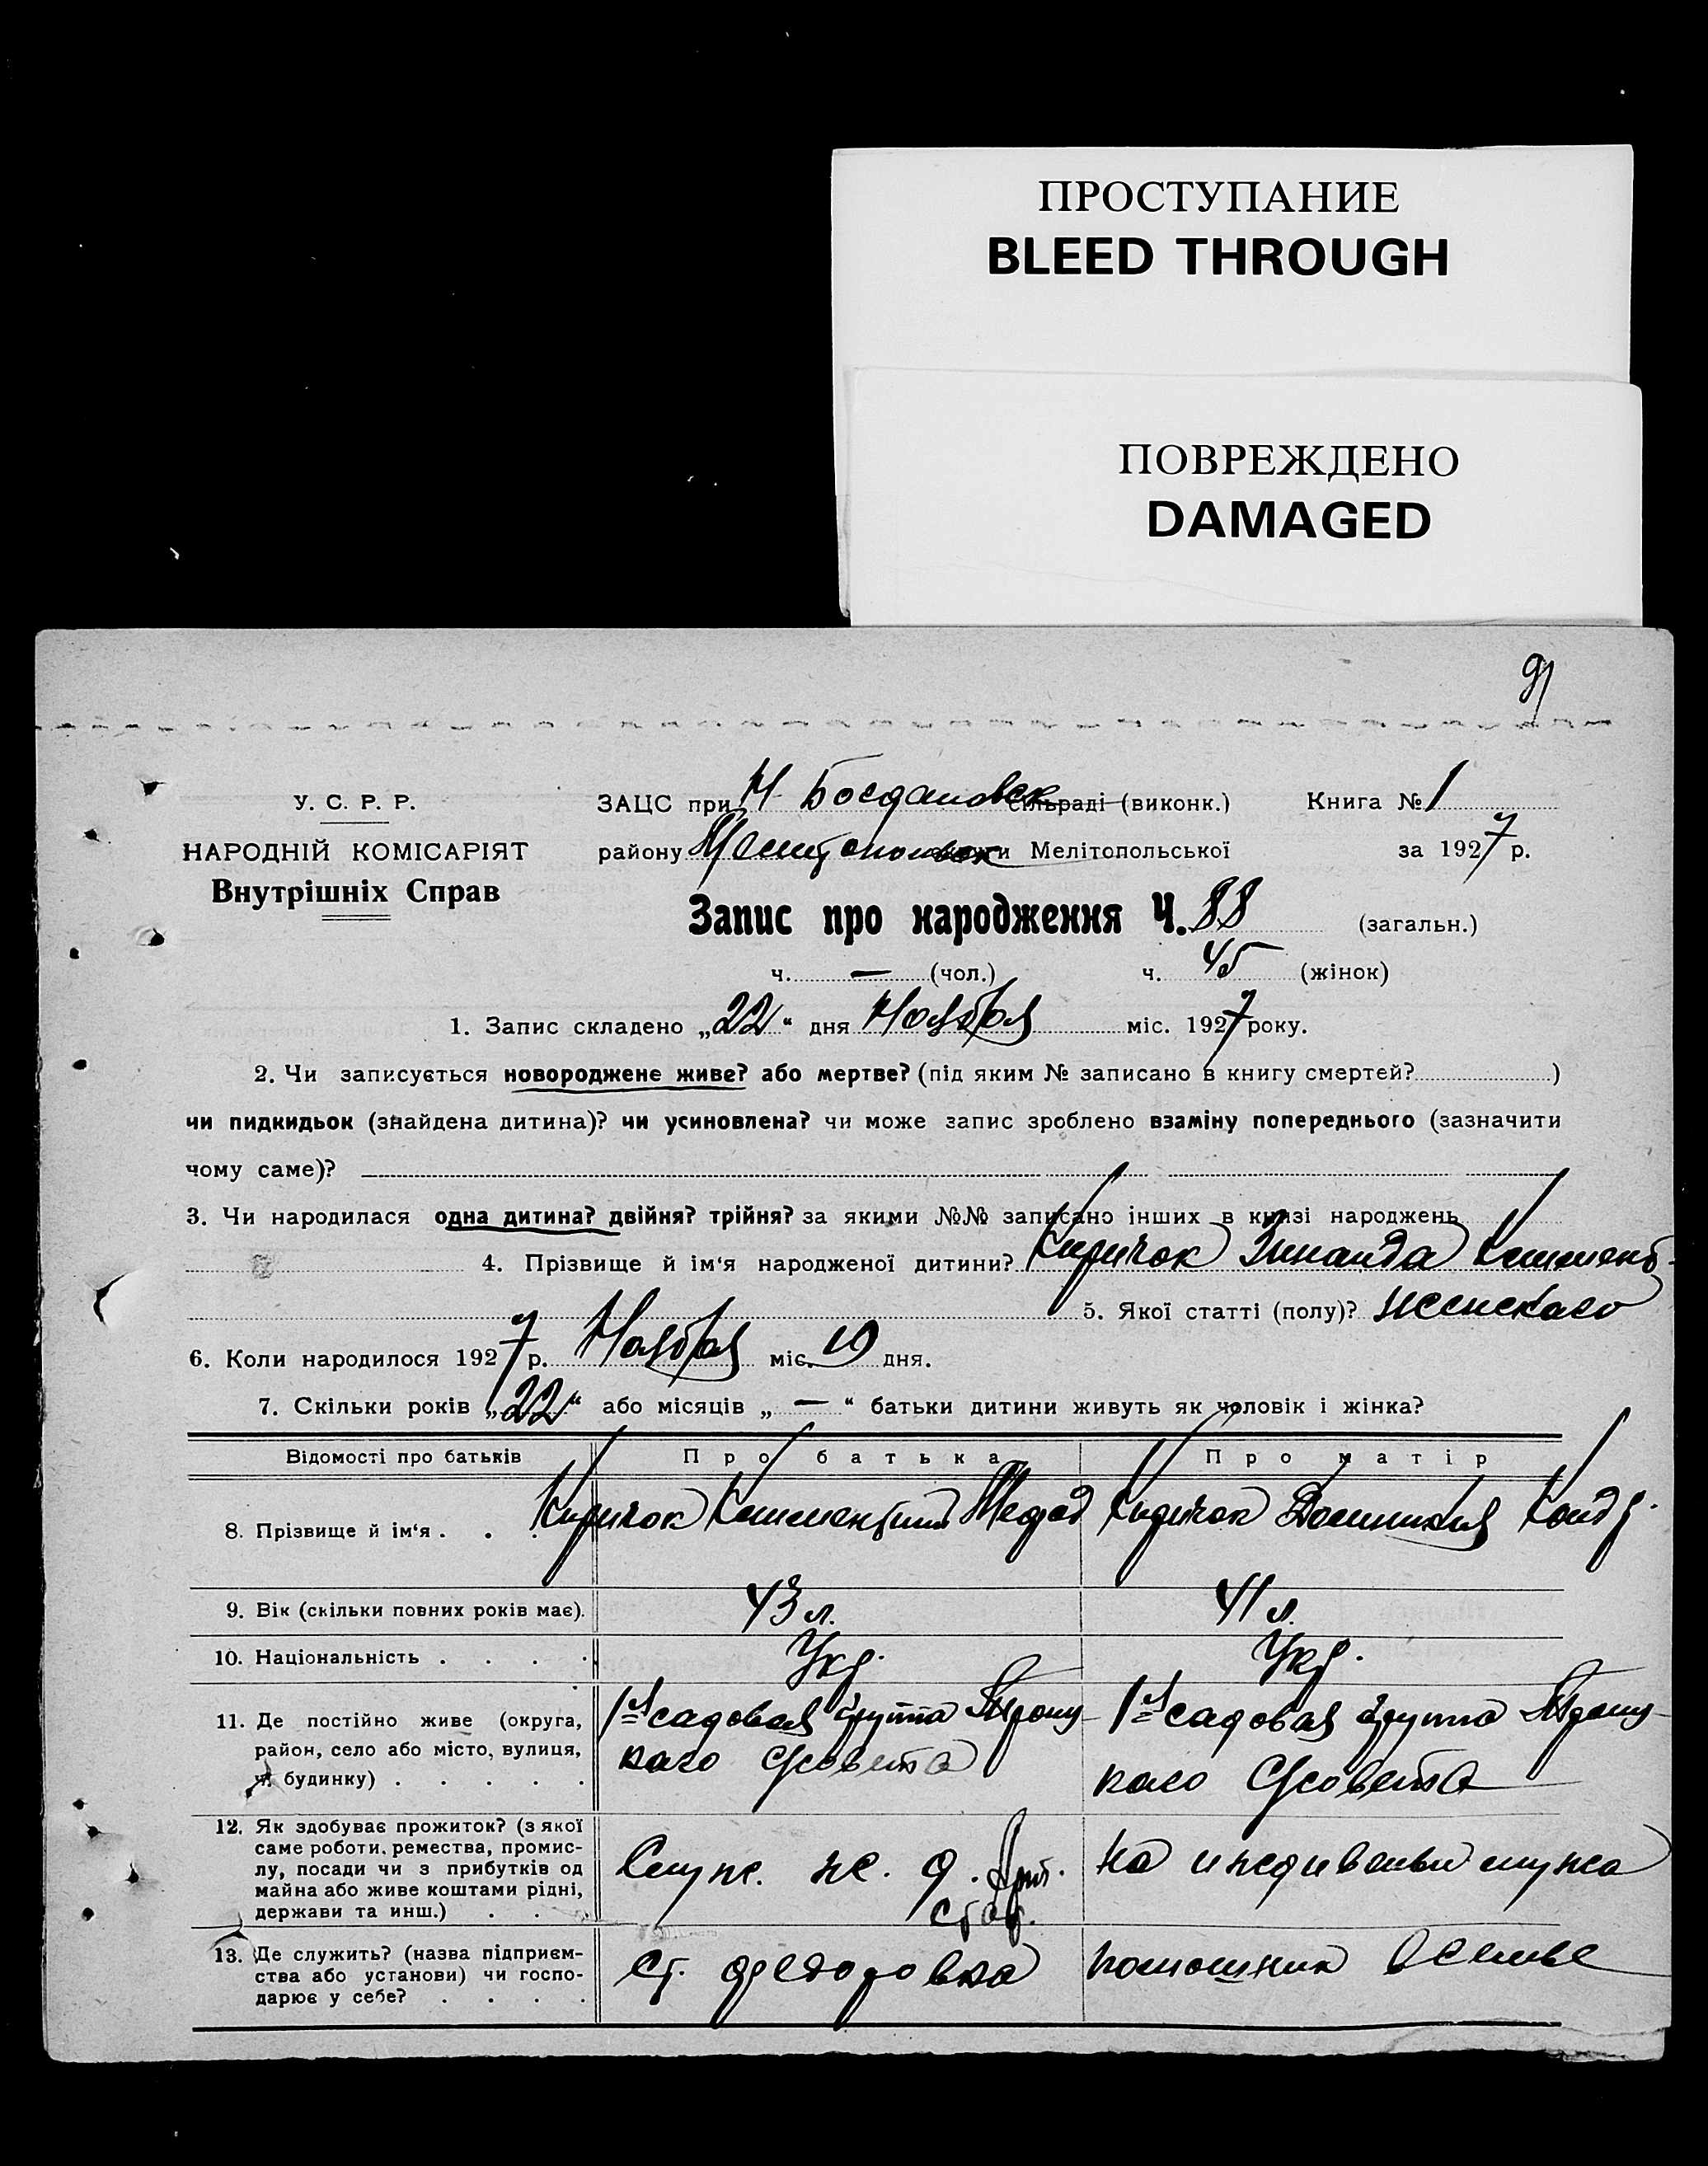 ПРОСТУПАНИЕ
BLEED THROUGH
ПОВРЕЖДЕНО
DAMAGED
91
У. С. Р. Р.
НАРОДНІЙ КОМІСАРІЯТ
Внутрішніх Справ
ЗАЦС при Н Богдановск сільраді (виконк.) Книга № 1
району Мелитопольск округи Мелітопольської за 1927 р.
Запис про народження Ч. 88 (загальн.)
ч. — (чол.) ч. 45 (жінок)
1. Запис складено „22“ дня Ноября міс. 1927 року.
2. Чи записується новороджене живе? або мертве? (під яким № записано в книгу смертей? )
чи пидкидьок (знайдена дитина)? чи усиновлена? чи може запис зроблено взаміну попереднього (зазначити
чому саме)?
3. Чи народилася одна дитина? двійня? трійня? за якими №№ записано інших в книзі народжень
4. Прізвище й ім'я народженої дитини? Киричок Зинаида Клемент-
5. Якої статті (полу)? женскаго
6. Коли народилося 1927 р. Ноября міс. 19 дня.
7. Скільки років „22“ або місяців „ — “ батьки дитини живуть як чоловік і жінка?
Відомості про батьків Про батька Про матір
8. Прізвище й ім'я . . . Киричок Климентий Мефод Киричок Домникия Конд.
9. Вік (скільки повних років має). 43 л. 41 л.
10. Національність . . . . Укр. Укр.
11. Де постійно живе (округа,
район, село або місто, вулиця,
ч. будинку) . . . . .
1я садовая группа
каго С/совета
1я садовая группа
каго С/совета
12. Як здобуває прожиток? (з якої
саме роботи, ремества, промис-
лу, посади чи з прибутків од
майна або живе коштами рідні,
держави та инш.) . . .
Служ. ж. д.
на иждивении мужа
13. Де служить? (назва підприєм-
ства або установи) чи госпо-
дарює у себе? . . . .
ст. Федоровка